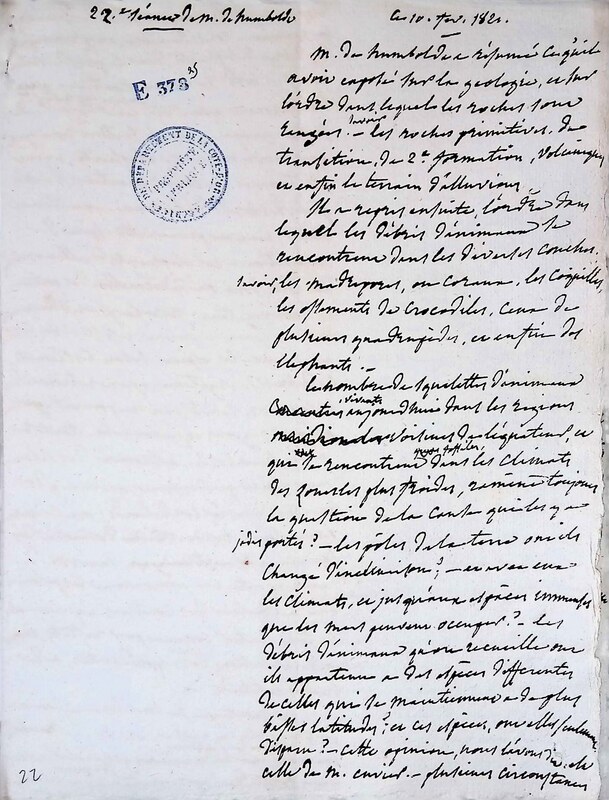 22.e séance de M. de humboldt
Ce 10. fev. 182
E 378 35
DÉPARTEMENT DE LA CÔTE-D'OR
PROPRIÉTÉ PUBLIQUE
M. de humboldt a résumé ce qu'il
avoit exposé sur la géologie, et sur
l'ordre dans lequel les roches sont
rangées. savoir - les roches primitives, de
transition, de 2.e formation, volcaniques
et enfin le terrain d'alluvion
Il a repris ensuite, l'ordre dans
lequel les débris d'animaux se
rencontrent dans les diverses couches.
savoir, les madrepores, ou coraux, les coquilles,
les ossements de crocodiles, ceux de
plusieurs quadrupèdes, et enfin des
elephants. -
le nombre de squelettes d'animaux
vivants aujourd'hui dans les régions
voisines de l'équateur, et
qui se rencontrent fossiles dans les climats
des zones les plus froides, ramène toujours
la question de la cause qui les y a
jadis portés ? - les pôles de la terre ont ils
changé d'inclinaison ? - et avec eux
les climats, et jusqu'aux espaces immenses
que des mers peuvent occuper ? - les
débris d'animaux qu'on recueille ont
ils appartenu a des espèces différentes
de celles qui se maintiennent a de plus
basses latitudes ? et ces espèces, ont elles seulement
disparu ? - cette opinion, nous l'avons dit, est
celle de M. cuvier. - plusieurs circonstances
22